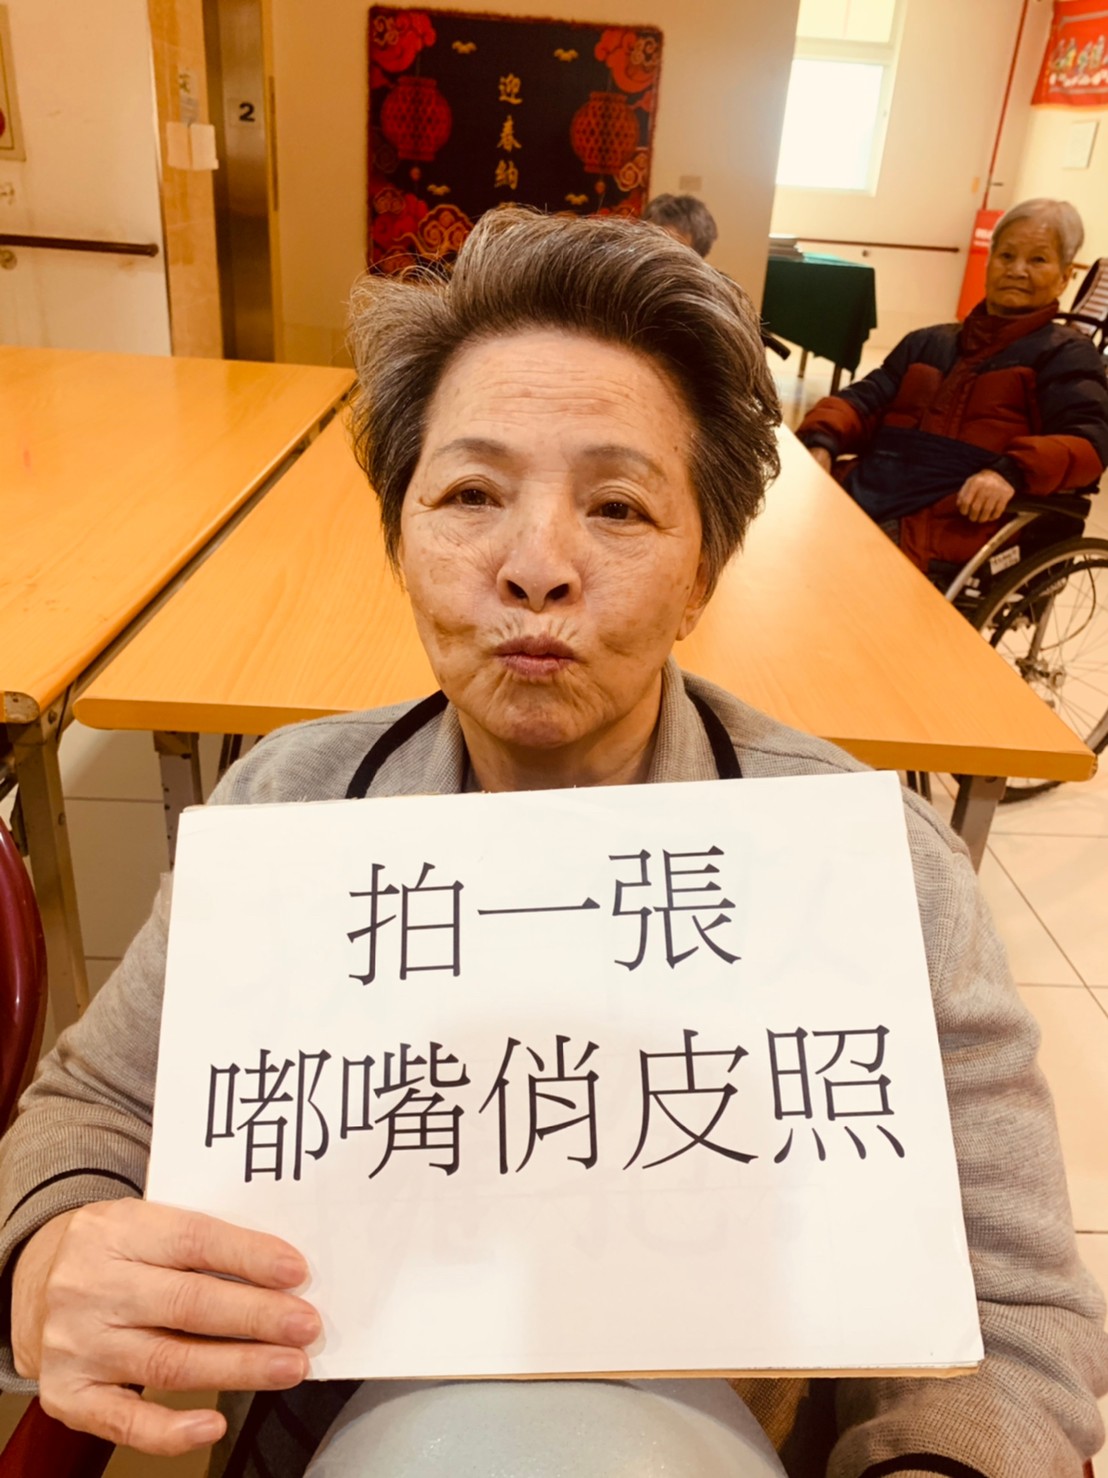 2
迎春納
拍一張
嘟嘴俏皮照